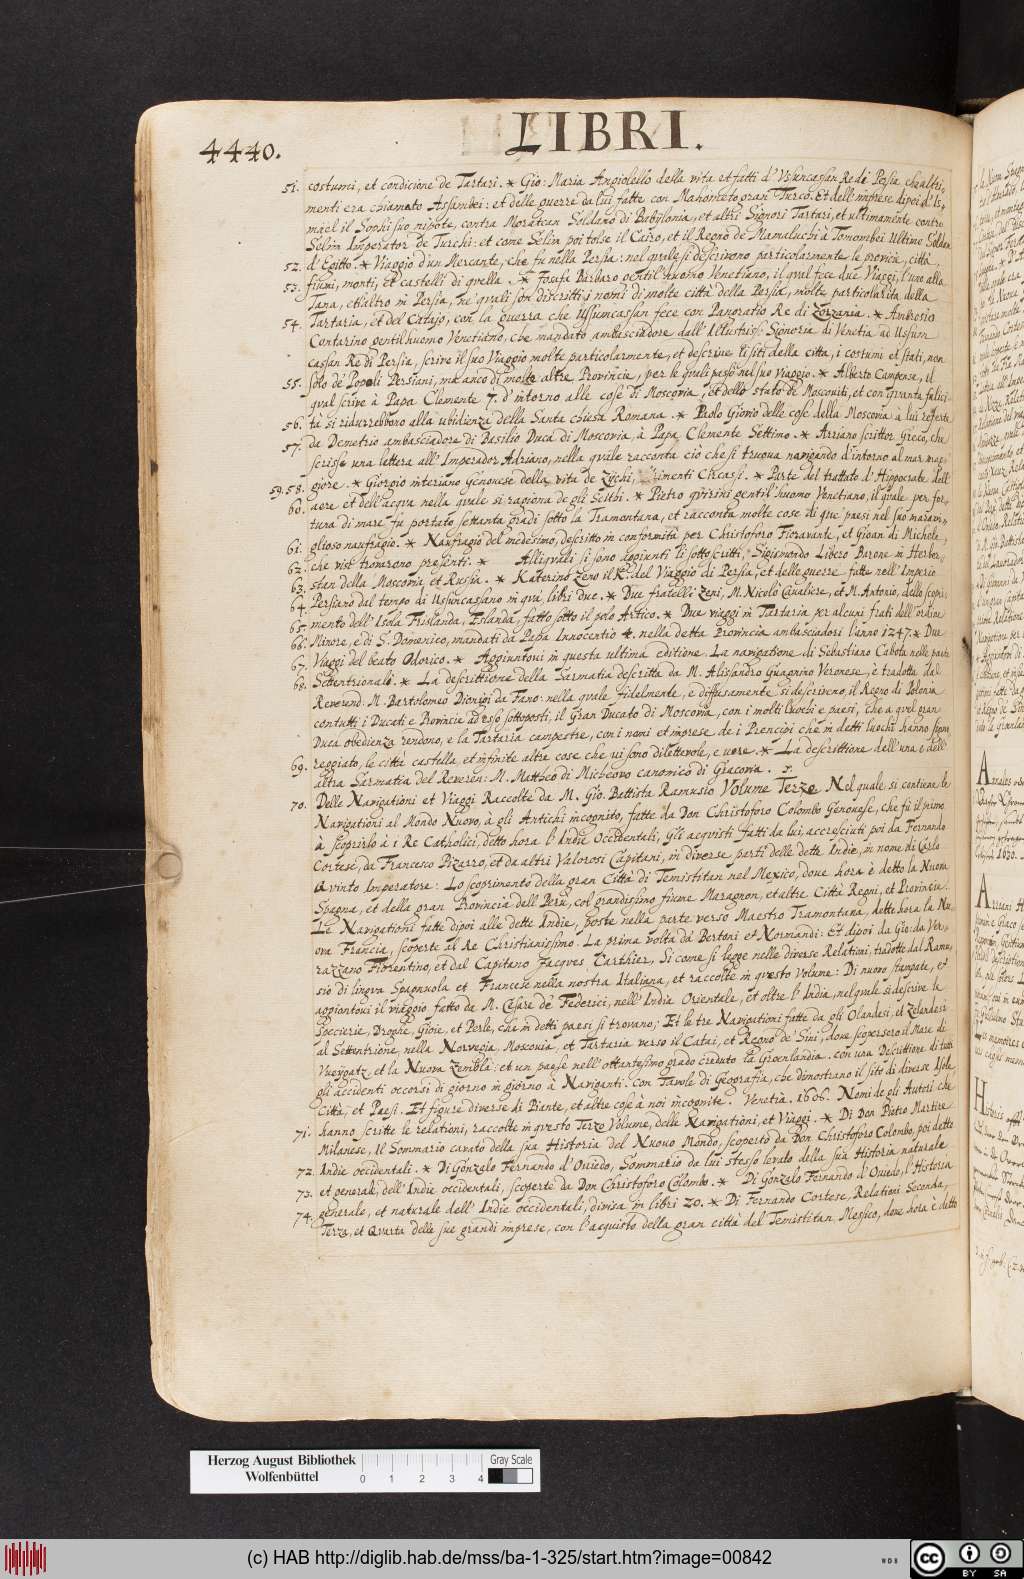 4440.
LIBRI.
51. costumi, et condicione de Tartari. * Gio: Maria Angiolello della vita et fatti d'Ussuncassan Re de Persia, che altri,
menti era chiamato Assambei: et delle guerre da lui fatte con Mahometo gran Turco. Et dell'imprese dipoi d'Is,
mael il Sophi suo nipote, contra Moratcan Soldano di Babylonia, et altri Signori Tartari, et ultimamente contro
Selin Imperator de Turchi: et come Selin poi tolse il Cairo, et il Regno de Mamaluchi à Tomombei Ultimo Soldan
52. d'Egitto. * Viaggio d'un Mercante, che fu nella Persia: nel quale si descrivono particolarmente le provin, città,
53. fiumi, monti, et castelli di quella. * Josafa Barbaro gentil'huomo Venetiano, il qual fece due Viaggi, l'uno alla
Tana, et l'altro in Persia, ne quali son discritti i nomi di molte città della Persia, molte particolarita della
54. Tartaria, et del Catajo, con la guerra che Ussumcassan fece con Pancratio Re di Zorzania. * Ambrosio
Contarino gentilhuomo Venetiano, che mandato ambasciadore dall'Illustriss: Signoria di Venetia ad Ussum
cassan Re di Persia, scrive il suo Viaggio molte particolarmente, et descrive li siti della citta, i costumi et stati, non
55. solo de' Popoli Persiani, ma anco di molte altre Provincie, per le quali passò nel suo viaggio. * Alberto Campense, il
qual scrive à Papa Clemente 7. d'intorno alle cose di Moscovia, et dello stato di Moscoviti, et con quanta felici
56. tà si ridurrebbono alla ubidienza della Santa chiesa Romana. * Paolo Giovio delle cose della Moscovia à lui referte
57. da Demetrio ambasciadore di Basilio Duca di Moscovia, à Papa Clemente Settimo. * Arriano scrittor Greco, che
scrisse una lettera all'Imperador Adriano, nella quale racconta cio che si truova navigando d'intorno al mar mag,
59. 58. giore. * Giorgio interiano Genouese della vita de Zychi, altrimenti Circassi. * Parte del trattato d'Hippocrate dell'
60. aere et dell'acqua nella quale si ragiona de gli Scithi. * Pietro quirini gentil'huomo Venetiano, il quale per for,
tuna di mare fu portato settanta gradi sotto la Tramontana, et racconta molte cose di que' paesi nel suo maravi
61. glioso naufragio. * Naufragio del medesimo, descritto in conformità per Christoforo Fioravante, et Gioan di Michele,
62. che vist trovarono presenti. * Alli quali si sono aggiunti li sotto scritti, Sigismondo Libero Barone in Herber,
63. stan della Moscovia et Russia. * Katerino Zeno il K. del Viaggio di Persia, et delle guerre fatte nell'Imperio
64. Persiano dal tempo di Ussuncassano in quà libri due. * Due fratelli Zeni, M. Nicolò Cavaliere, et M. Antonio, dello scopri
65. mento dell'Isola Frislanda, Eslanda, fatto sotto il polo Artico. * Due viaggi in Tartaria per alcuni frati dell'ordine
66. Minore, e di S. Domenico, mandati da Papa Innocentio 4. nella detta Provincia ambasciadori l'anno 1247. * Due
67. Viaggi del beato Odorico. * Aggiuntovi in questa ultima editione. La navigatione di Sebastiano Cabota nelle parte
68. Settentrionali. * La descrittione della Sarmatia descritta da M. Alissandro Guagnino Veronese, è tradotta dal
Reverend. M. Bartolomeo Dionigi da Fano: nella quale fidelmente, è diffusamente si descriveno il Regno di Polonia
con tutti i Ducati e Provincie ad esso sottoposti, il Gran Ducato di Moscovia, con i molti luochi e paesi, che a quel gran
Duca obedienza rendono, e la Tartaria campestre, con i nomi et imprese de i Prencipi che in detti luochi hanno signo,
69. reggiato, le città castella, et infinite altre cose che vi sono dilettevole, e uere. * La descrittione dell'una e dell'
altra Sarmatia del Reveren: M. Mattheo di Micheovo canonico di Gracovia.
70. Delle Navigationi et Viaggi Raccolte da M. Gio. Battista Ramusio Volume Terzo Nel quale si contiene le
Navigationi al Mondo Nuovo, à gli Antichi incognito, fatte da Don Christoforo Colombo Genouese, che fù il primo
à scoprirlo à i Re Catholici, detto hora l'Indie Occidentali, Gli acquisti fatti da lui, accresciuti poi da Fernando
Cortese, da Francesco Pizarro, et da altri Valorosi Capitani, in diverse parti delle dette Indie, in nome di Carlo
Quinto Imperatore: Lo scoprimento della gran Città di Temistitan nel Mexico, doue hora è detto la Nuova
Spagna, et della gran Provincia dell Perù, col grandissimo fiume Maragnon, et altre Città Regni, et Provincie.
Le Navigationi fatte dipoi alle dette Indie, poste nella parte verso Maestro Tramontana, dette hora la Nu,
ova Francia, scoperte al Re Christianissimo. La prima volta da Bertoni et Normandi: Et dipoi da Gio: da Ver,
razzano Fiorentino, et dal Capitano Jacques Carthier, Si come si legge nelle diverse Relationi, tradotte dal Ramu,
sio di lingua Spagnuola et Francese nella nostra Italiana, et raccolte in questo Volume: Di nuovo stampate, et
aggiontoui il viaggio fatto da M. Cesare de' Federici, nell'India Orientale, et oltre l'India, nel quale si descrive le
Speccierie, Droghe, Gioie, et Perle, che in detti paesi si trovano; Et le tre Navigationi fatte da gli Olandesi, et Zelandesi
al Settentrione, nella Norvegia, Moscovia, et Tartaria verso il Catai, et Regno de' Sini, dove scopersero il Mare di
Vueygatz et la Nuova Zembla: et un paese nell'ottantesimo grado creduto la Groenlandia. con una Descrittione di tutti
gli accidenti occorsi di giorno in giorno à Naviganti. Con Tavole di Geografia, che dimostrano il sito di diverse Isole,
Città, et Paesi. Et figure diverse di Piante, et altre cose à noi incognite. Venetia. 1606. Nomi de gli Autori che
71. hanno scritte le relationi, raccolte in questo Terzo Volume, delle Navigationi, et Viaggi. * Di Don Pietro Martire
Milanese, Il Sommario cavato della sua Historia del Nuouo Mondo, scoperto da Don Christoforo Colombo, poi dette
72. Indie occidentali. * Di Gonzalo Fernando d'Oviedo, Sommario da lui stesso levato della sua Historia naturale
73. et generale, dell'Indie occidentali, scoperte da Don Christoforo Colombo. * Di Gonzalo Fernando d'Oviedo, l'Historia
74. generale, et naturale dell'Indie occidentali, divisa in libri 20. * Di Fernando Cortese, Relationi Seconda,
Terza, et Quarta delle sue grandi imprese, con l'acquisto della gran città del Temistitan Messico, doue hora è detto
Herzog August Bibliothek
Wolfenbüttel
0 1 2 3 4
Gray Scale
(c) HAB http://diglib.hab.de/mss/ba-1-325/start.htm?image=00842
WDB
cc BY SA